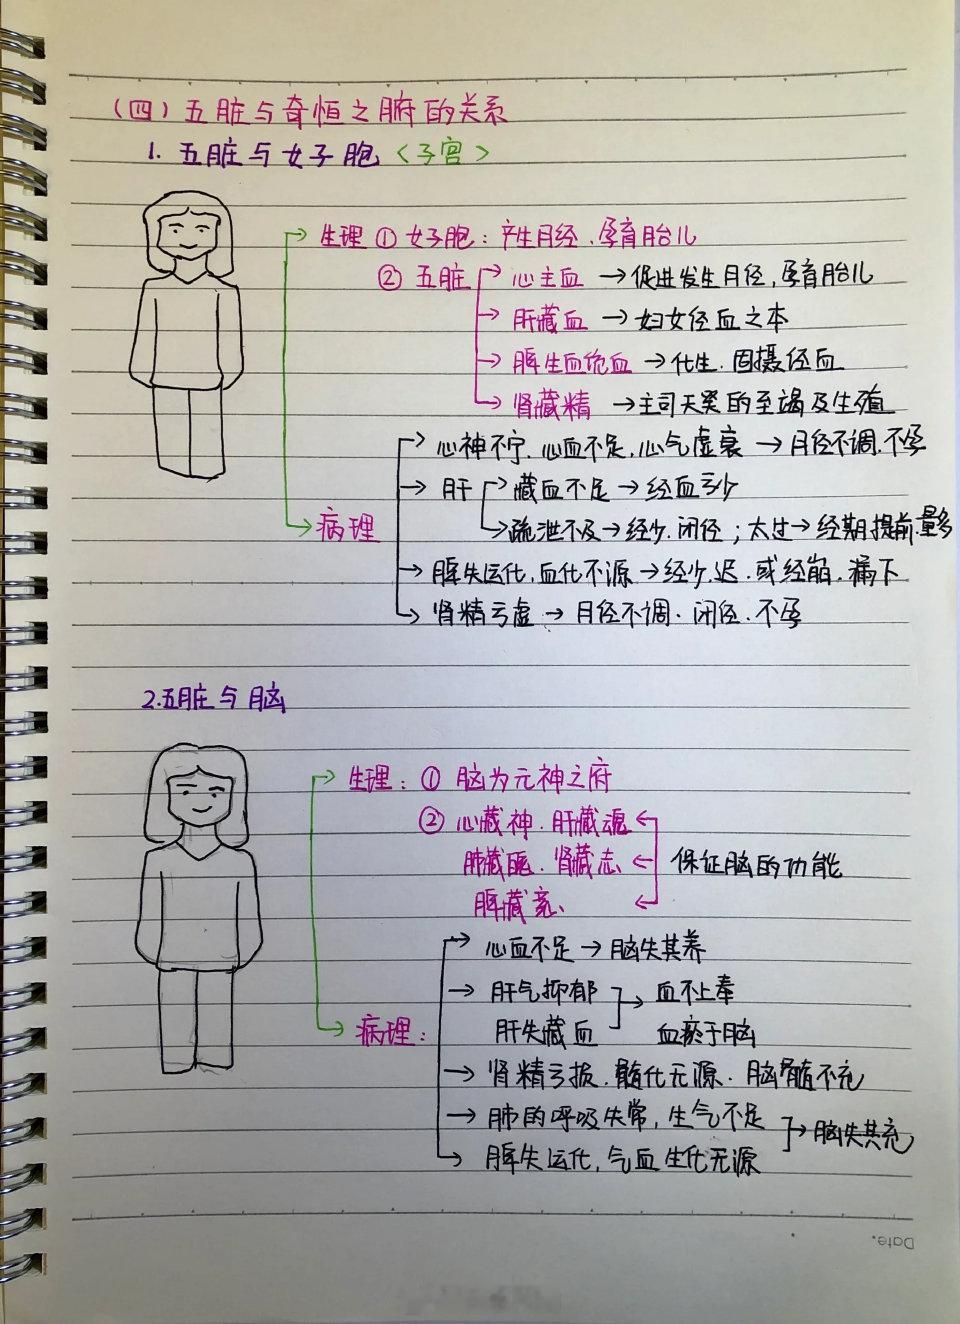 (四)五脏与奇恒之腑的关系
1. 五脏与女子胞<子宫>
生理 ① 女子胞：产生月经、孕育胎儿
② 五脏 → 心主血 → 促进发生月经,孕育胎儿
→ 肝藏血 → 妇女经血之本
→ 脾生血统血 → 化生、固摄经血
→ 肾藏精 → 主司天癸的至竭及生殖
→ 心神不宁、心血不足,心气虚衰 → 月经不调、不孕
→ 肝 → 藏血不足 → 经血亏少
病理 → 疏泄不及 → 经少、闭经；太过 → 经期提前、量多
→ 脾失运化,血化不源 → 经少、迟、或经崩、漏下
→ 肾精亏虚 → 月经不调、闭经、不孕
2.五脏与脑
生理：① 脑为元神之府
② 心藏神、肝藏魂
肺藏魄、肾藏志 保证脑的功能
脾藏意、
→ 心血不足 → 脑失其养
→ 肝气抑郁 → 血不上奉
病理： 肝失藏血 血瘀于脑
→ 肾精亏损、髓化无源、脑髓不充
→ 肺的呼吸失常,生气不足
→ 脑失其充
→ 脾失运化,气血生化无源
Date.